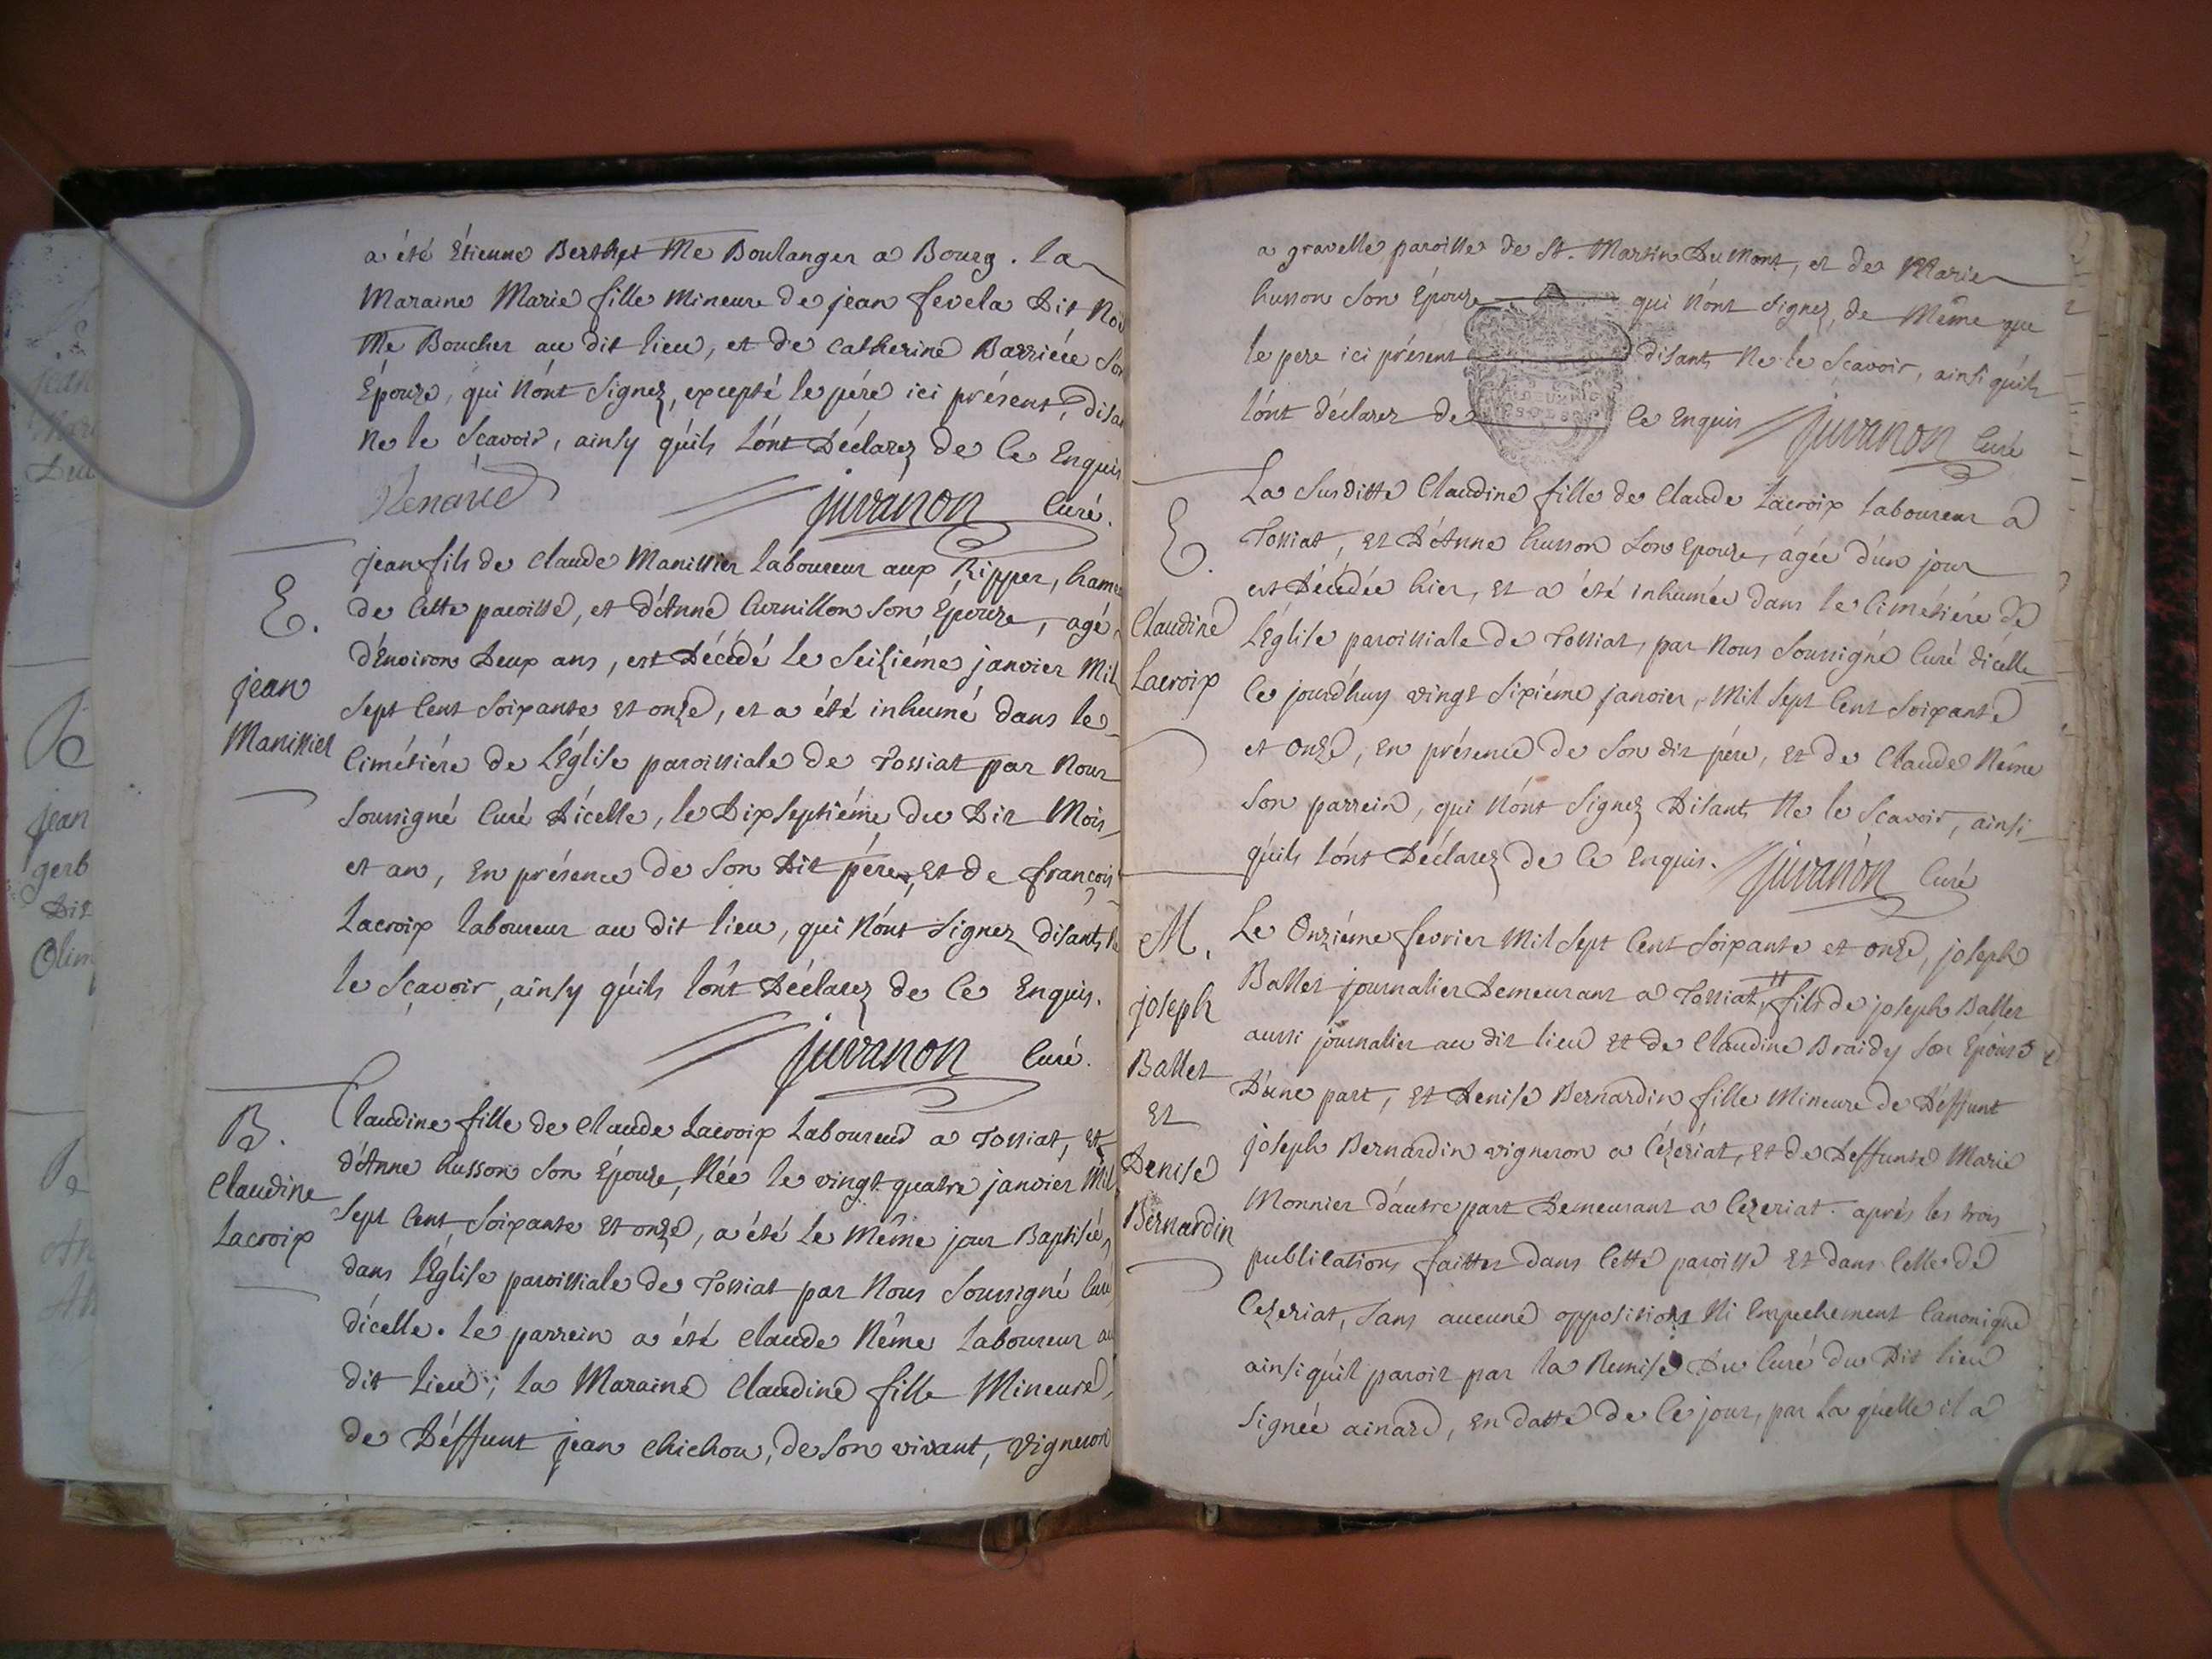 a été Etienne Berthet Me Boulanger a Bourg. la
Maraine Marie fille Mineure de jean fevela Dit
Me Boucher au dit lieu, et de Catherine Barriére Son
Épouze, qui n'ónt Signez, excepté le pére ici présent, disa
Ne le Sçavoir, ainsy qu'ils l'ónt Déclarez de Ce Enquis
Renaud
juvanon Curé.
E.
jean
Manissier
jean fils de Claude Manissier laboureur aux Rippes, hame
de Cette paroisse, et d'Anne Curnillon Son Épouze, agé
d'Environ Deux ans, est Décédé le Seiziéme janvier Mil
Sept Cent Soixante et onze, et a été inhumé dans le
Cimétiére de L'Église paroissiale de Tossiat par Nous
Soussigné Curé D'icelle, le Dixseptiéme du Dit Mois
et an, En présence de Son Dit pére, Et de françois
Lacroix laboureur au dit lieu, qui n'ónt Signez disants Ne
le Sçavoir, ainsy qu'ils l'ónt Déclarez de Ce Enquis.
juvanon Curé.
B.
Claudine
Lacroix
Claudine fille de Claude Lacroix Laboureur a Tossiat, Et
d'Anne husson Son Épouze, Née le vingt quatre janvier Mil
Sept Cent Soixante Et onze, a été Le Même jour Baptisée,
dans L'Eglise paroissiale de Tossiat par Nous Soussigné Curé
d'icelle. le parrein a été Claude Nême Laboureur au
dit Lieu; la Maraine Claudine fille Mineure,
de Déffunt jean Chichou, de Son vivant, vigneron
a gravelle, paroisse de St. Martin Du Mont, et de Marie
husson Son Épouze qui n'ónt Signez, de Même que
le pere ici présent disants Ne le Scavoir, ainsi qu'ils
l'ónt déclarez de Ce Enquis juvanon Curé
E.
Claudine
Lacroix
La Susditte Claudine fille de Claude Lacroix laboureur a
Tossiat, Et D'Anne husson Son Epouze, agée d'un jour
est Décédée hier, Et a été inhumée dans le Cimétiére de
L'Église paroissiale de Tossiat, par Nous Soussigné Curé d'icelle
Ce jourd'huy vingt Sixiéme janvier, Mil Sept Cent Soixante
et Onze, En présence de Son dit pére, Et de Claude Nême
Son parrein, qui n'ónt Signez Disants Ne le Scavoir, ainsi
qu'ils l'ónt Déclarez de Ce Enquis. juvanon Curé
M.
joseph
Ballet
Et
Denise
Bernardin
Le Onziéme fevrier Mil Sept Cent Soixante et onze, joseph
Ballet journalier Demeurant a Tossiat, fils de joseph Ballet
aussi journalier au dit lieu Et de Claudine Braidy Son Epouse
D'une part, Et Denise Bernardin fille Mineure de Déffunt
joseph Bernardin vigneron a Cézériat, Et de Deffunte Marie
Monnier d'autre part Demeurant a Cezeriat. aprés les trois
publications faittes dans Cette paroisse Et dans Celle de
Cezeriat, Sans aucune opposition Ni Empechement Canonique
ainsi qu'il paroit par la Remise Du Curé du Dit lieu
Signée ainard, En datte de Ce jour, par La quelle il a